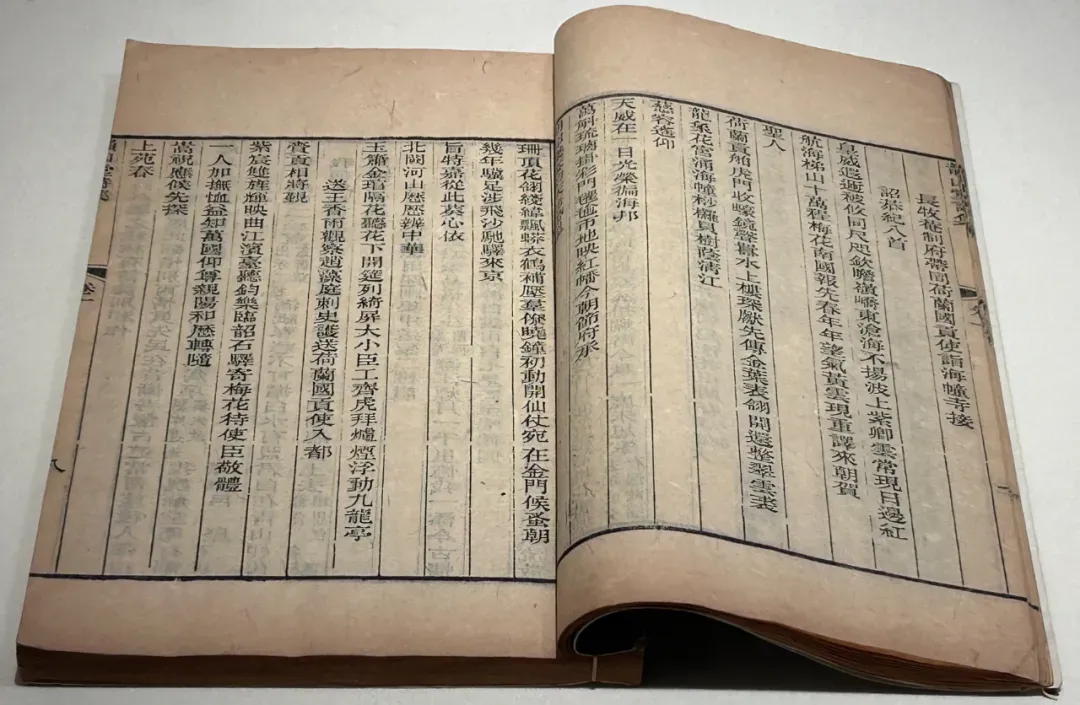 長牧菴制府帶同荷蘭國貢使詣海幢寺接
詔恭紀八首
皇威遐邇被攸同尺咫欽瞻嶺嶠東滄海不揚波上紫卿雲常現日邊紅
航海梯山十萬程梅花南國報先春年年望氣黃雲現重譯來朝賀
聖人
荷蘭貢舶虎門收蠔鏡聲水上樓琛獻先傳金葉表翎開還整翠雲裘
龍象花宮涌海幢桫欏貝樹蔭清江
慈容遙仰
天威在一日光榮徧海邦
萬斛琉璃掛彩門氍毹布地映紅幡今朝節府承
珊頂花翎綫緯飄蟒衣鶴補壓羣僚曉鐘初動開仙仗宛在金門候蚤朝
幾年驥足涉飛沙馳驛來京
旨特嘉從此葵心依
北闕河山歷歷辨中華
玉簫金琯隔花聽花下開筵列綺屏大小臣工齊虎拜爐煙浮動九龍亭
送王香雨觀察逍藻庭刺史護送荷蘭國貢使入都
賮貢相將覲
紫宸雙旌輝映曲江濱臺聽鈞樂臨韶石驛寄梅花待使臣敬體
一人加撫恤益知萬國仰尊親陽和歷轉隨
嵩祝應候先探
上苑春
卷一
八